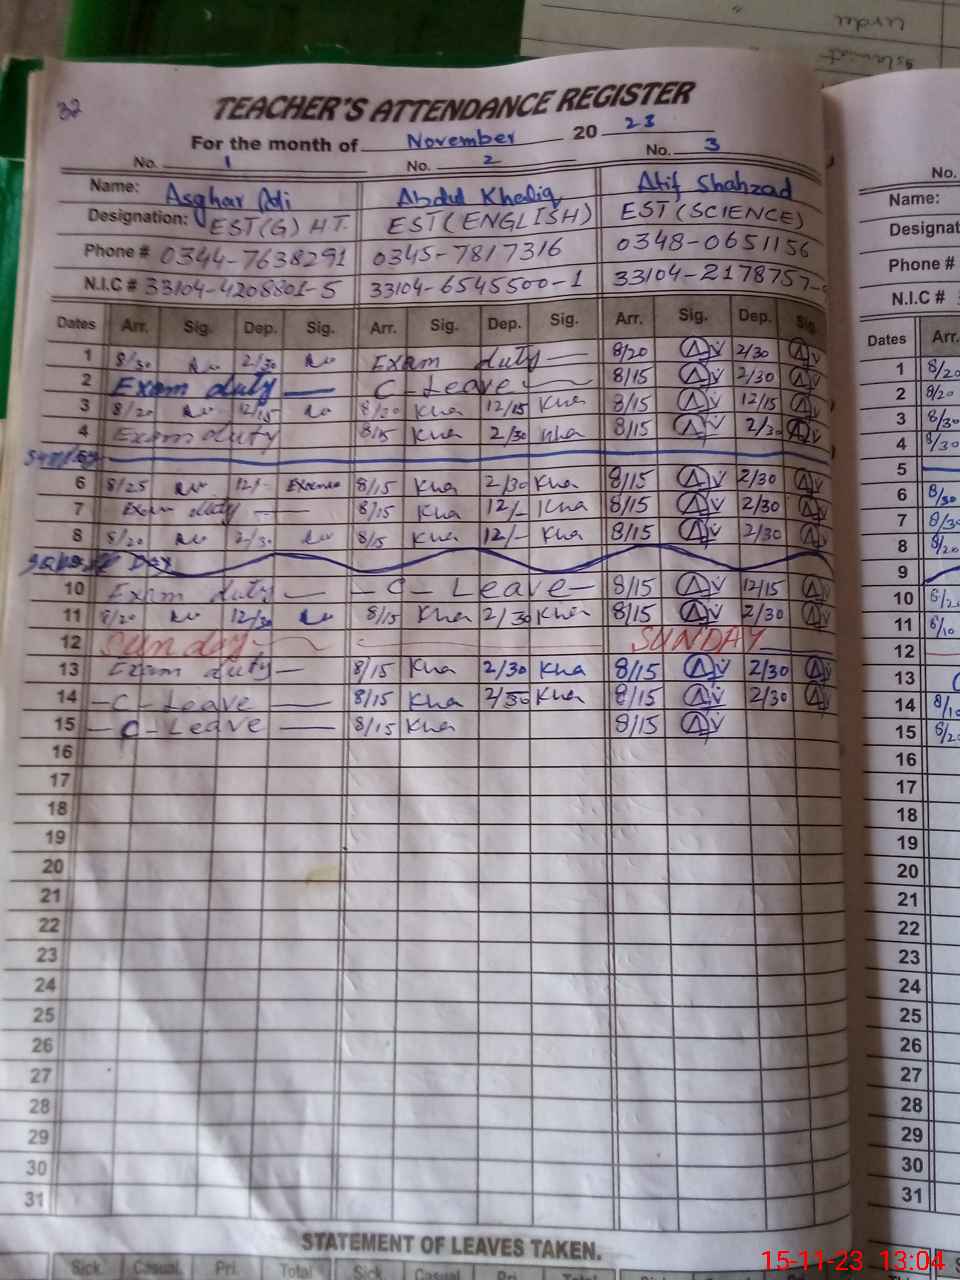 32
TEACHER'S ATTENDANCE REGISTER
For the month of November 20 23
No. 1 No. 2 No. 3
Name: Asghar Ali Abdul Khaliq Atif Shahzad
Designation: EST(G) H.T. EST(ENGLISH) EST(SCIENCE)
Phone # 0344-7638291 0345-7817316 0348-0651156
N.I.C # 33104-4208801-5 33104-6545500-1 33104-2178757-
Dates Arr. Sig. Dep. Sig. Arr. Sig. Dep. Sig. Arr. Sig. Dep. Sig.
1 8/30 2/30 Exam duty 8/20 2/30
2 Exam duty C-Leave 8/15 2/30
3 8/20 12/15 8/20 Kha 12/15 Kha 8/15 12/15
4 Exam duty 8/15 Kha 2/30 Kha 8/15 2/30
6 8/25 12/- 8/15 Kha 2/30 Kha 8/15 2/30
7 Exam duty 8/15 Kha 12/- Kha 8/15 2/30
8 8/20 2/30 8/15 Kha 12/- Kha 8/15 2/30
Day
10 Exam duty - C - Leave - 8/15 12/15
11 8/20 12/30 8/15 Kha 2/30 Kha 8/15 2/30
12 Sunday SUNDAY
13 Exam duty 8/15 Kha 2/30 Kha 8/15 2/30
14 - C - Leave 8/15 Kha 2/30 Kha 8/15 2/30
15 - C - Leave 8/15 Kha 8/15
16
17
18
19
20
21
22
23
24
25
26
27
28
29
30
31
STATEMENT OF LEAVES TAKEN.
Sick. Casual Pri. Total Sick. Casual Pri. Total
No.
Name:
Designat
Phone #
N.I.C #
Dates Arr.
1 8/20
2 8/20
3 8/30
4 8/30
5
6 8/30
7 8/30
8 8/20
9
10
11
12
13
14
15
16
17
18
19
20
21
22
23
24
25
26
27
28
29
30
31
15-11-23 13:04